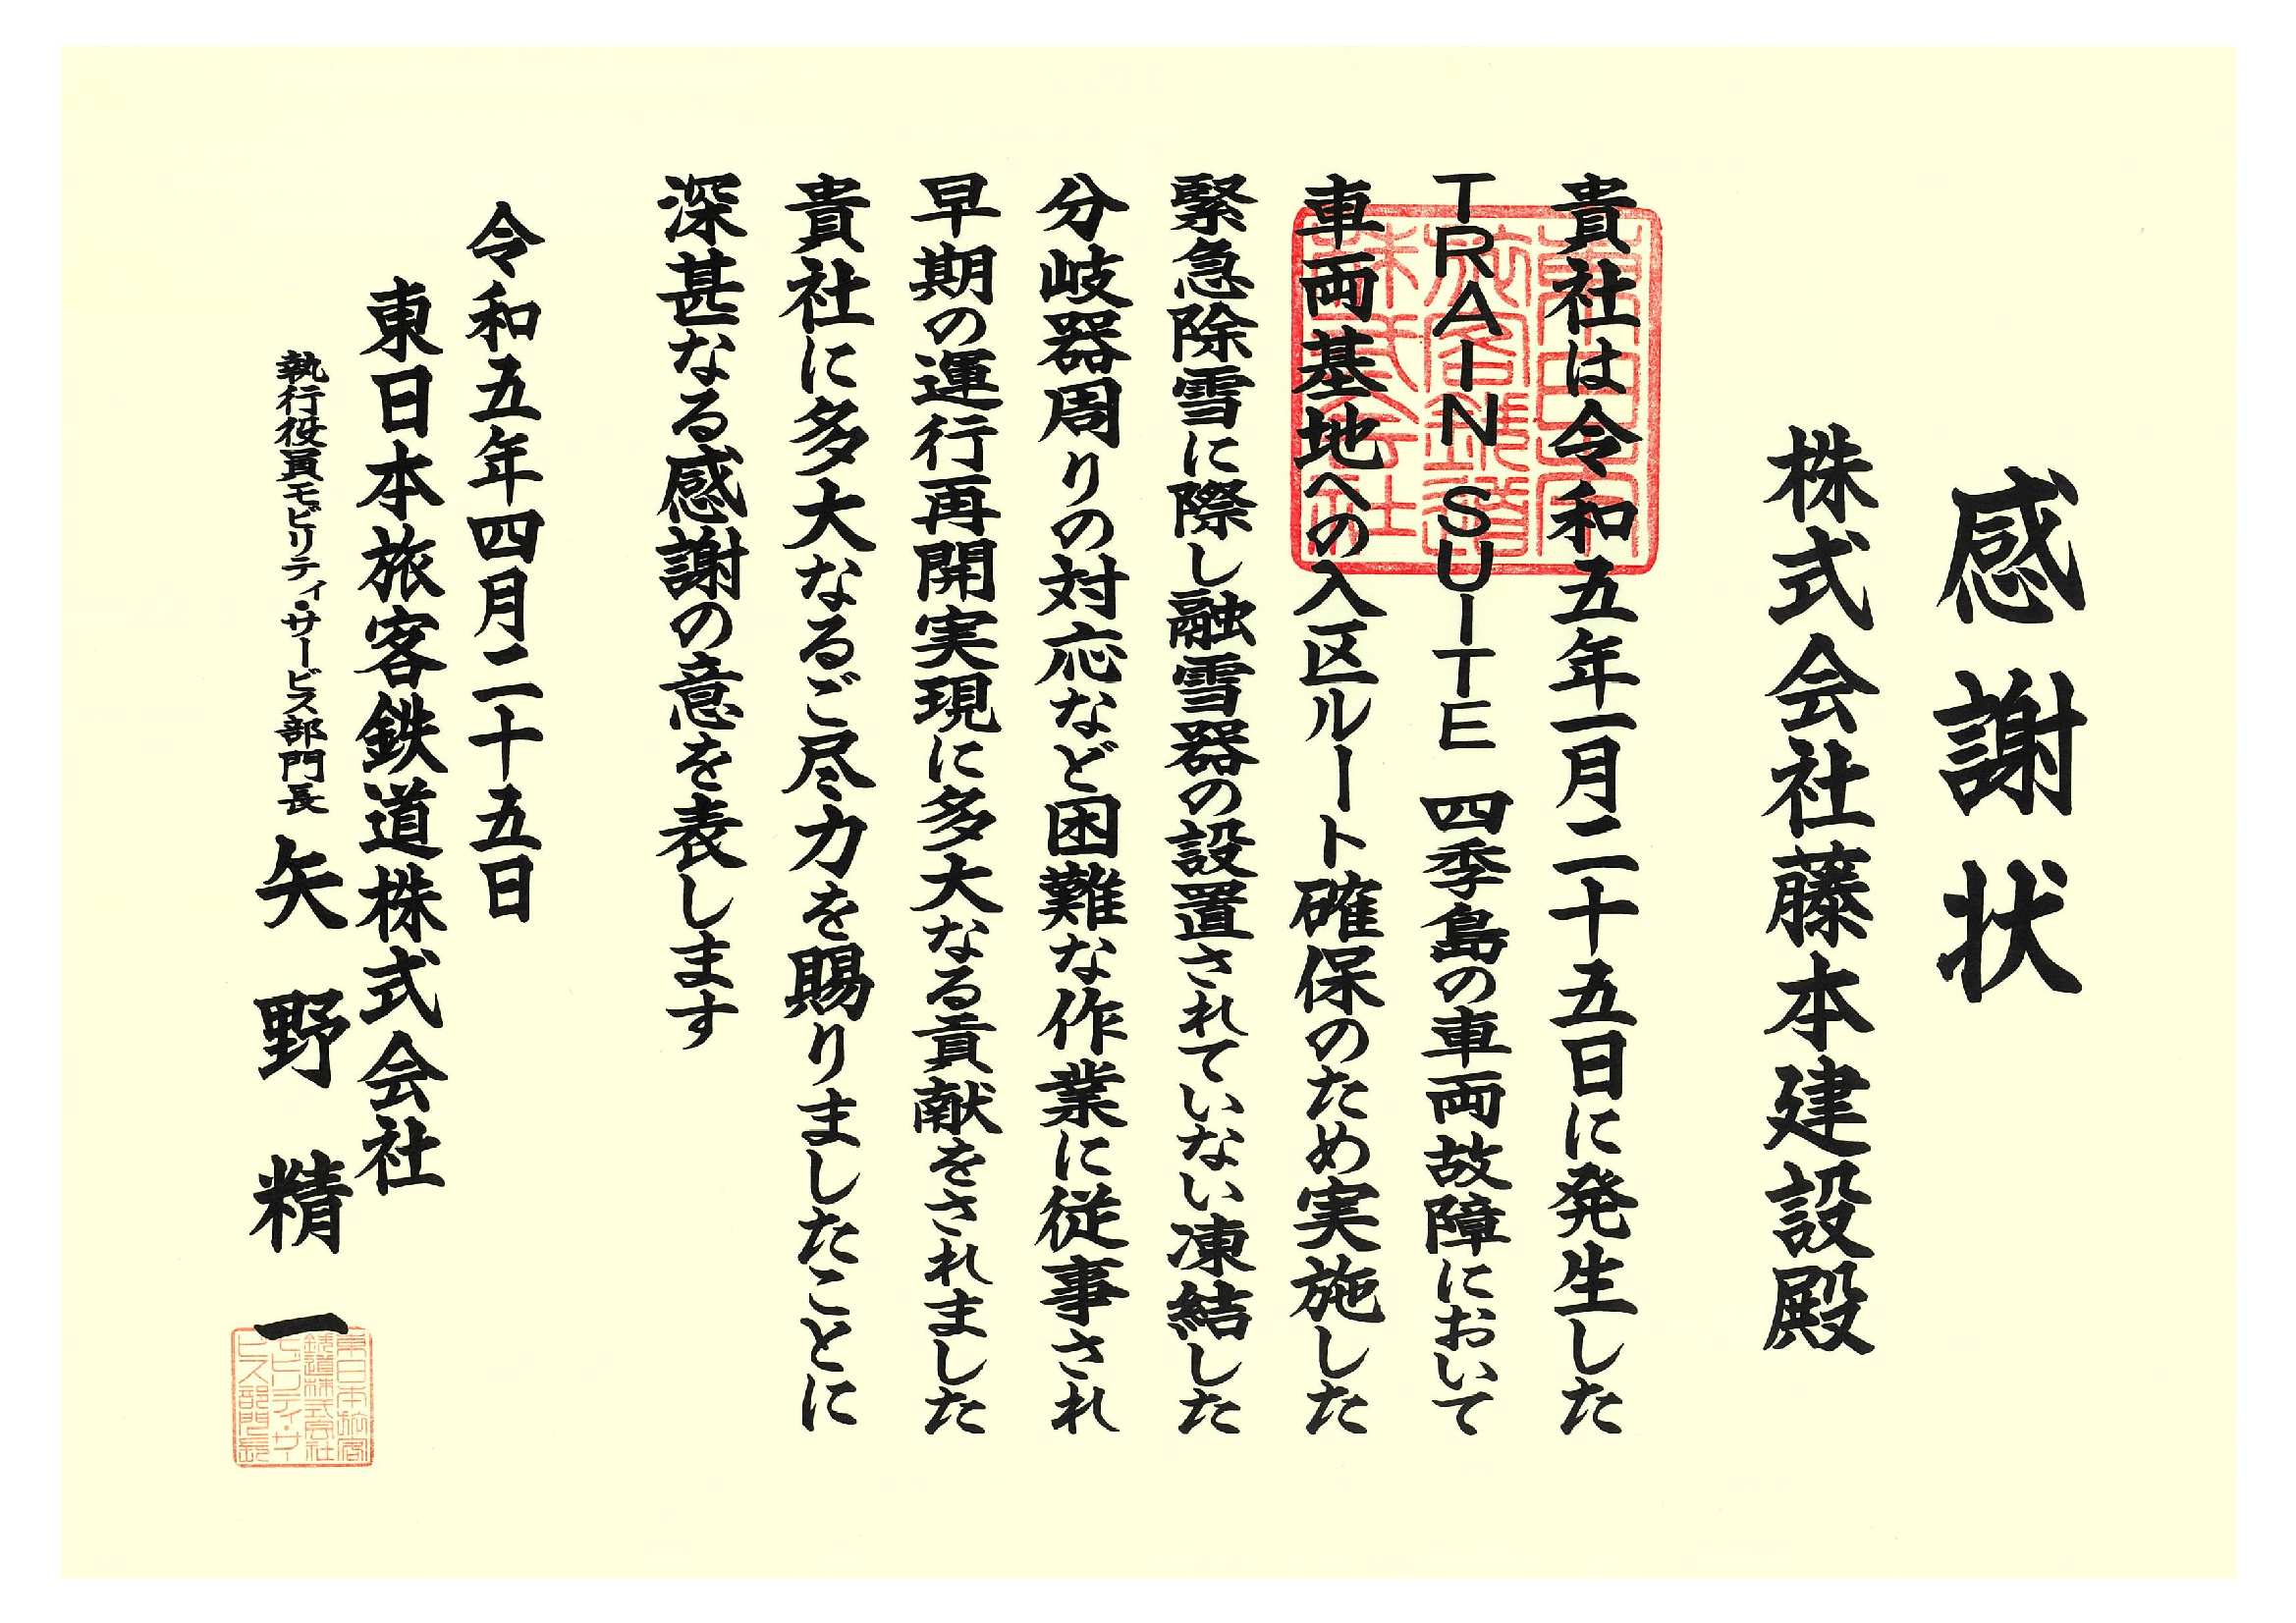 感謝状
株式会社藤本建設殿
貴社は令和五年一月二十五日に発生した
TRAIN SUITE 四季島の車両故障において
車両基地への入区ルート確保のため実施した
緊急除雪に際し融雪器の設置されていない凍結した
分岐器周りの対応など困難な作業に従事され
早期の運行再開実現に多大なる貢献をされました
貴社に多大なるご尽力を賜りましたことに
深甚なる感謝の意を表します
令和五年四月二十五日
東日本旅客鉄道株式会社
執行役員モビリティ・サービス部門長 矢野精一
東日本旅客
鉄道株式会社
モビリティ・サー
ビス部門長